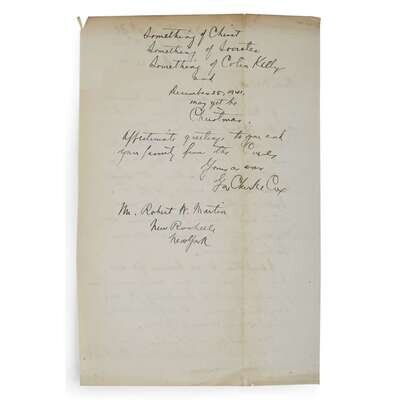 Something of Christ
Something of Socrates
Something of Colin Kelly
and
December 25, 1941,
may yet be
Christmas.
Affectionate greetings to you and
your family from the
Yours as ever
Cox
Mr. Robert W. Martin
New Rochelle
New York